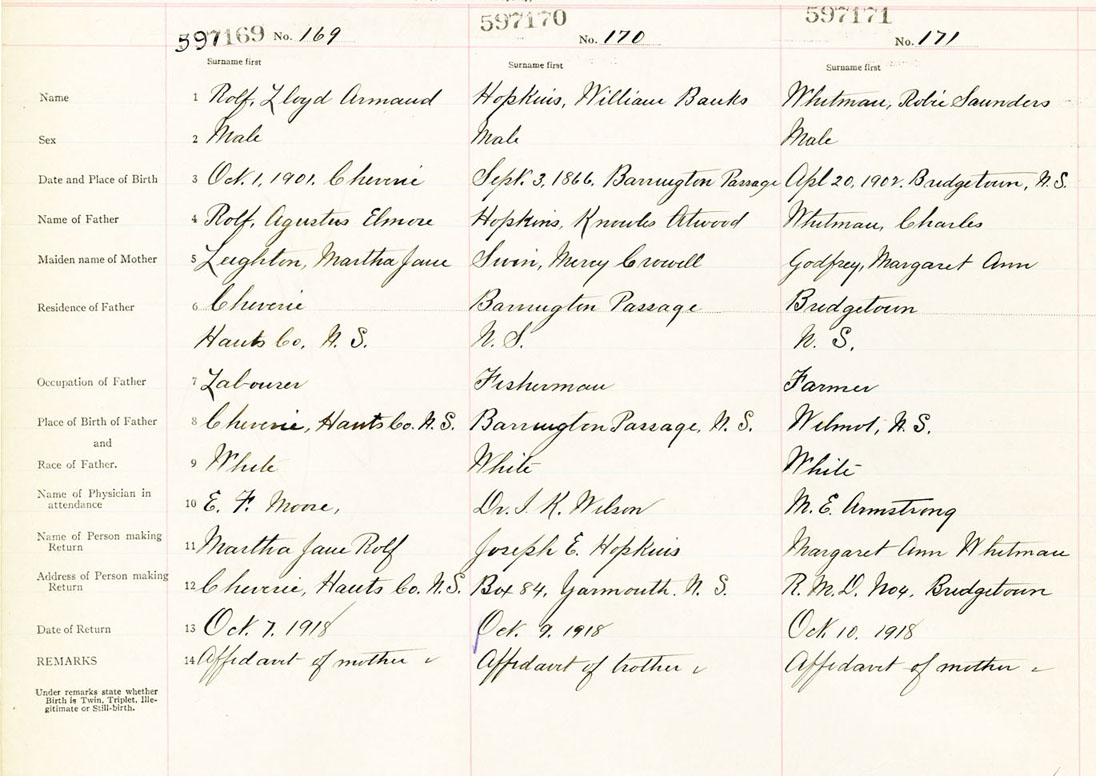 597169 No. 169 597170 No. 170 597171 No. 171
Surname first Surname first Surname first
Name 1 Rolf, Lloyd Armaud Hopkins, William Banks Whitman, Robie Saunders
Sex 2 Male Male Male
Date and Place of Birth 3 Oct. 1, 1901. Cheverie Sept. 3, 1866, Barrington Passage Apl 20, 1902. Bridgetown, N.S.
Name of Father 4 Rolf, Agustus Elmore Hopkins, Knowles Atwood Whitman, Charles
Maiden name of Mother 5 Leighton, Martha Jane Swin, Mercy Crowell Godfrey, Margaret Ann
Residence of Father 6 Cheverie Barrington Passage Bridgetown
Hants Co, N. S. N. S. N. S.
Occupation of Father 7 Labourer Fisherman Farmer
Place of Birth of Father 8 Cheverie, Hants Co. N. S. Barrington Passage, N. S. Wilmot, N. S.
and
Race of Father. 9 White White White
Name of Physician in attendance 10 E. F. Moore, Dr. I. K. Wilson M. E. Armstrong
Name of Person making Return 11 Martha Jane Rolf Joseph E. Hopkins Margaret Ann Whitman
Address of Person making Return 12 Cheverie, Hants Co. N. S. Box 84, Yarmouth. N. S. R. M. D. No 4, Bridgetown
Date of Return 13 Oct. 7. 1918 Oct. 9. 1918 Oct 10. 1918
REMARKS 14 Affidavit of mother Affidavit of brother Affidavit of mother
Under remarks state whether
Birth is Twin, Triplet, Ille-
gitimate or Still-birth.